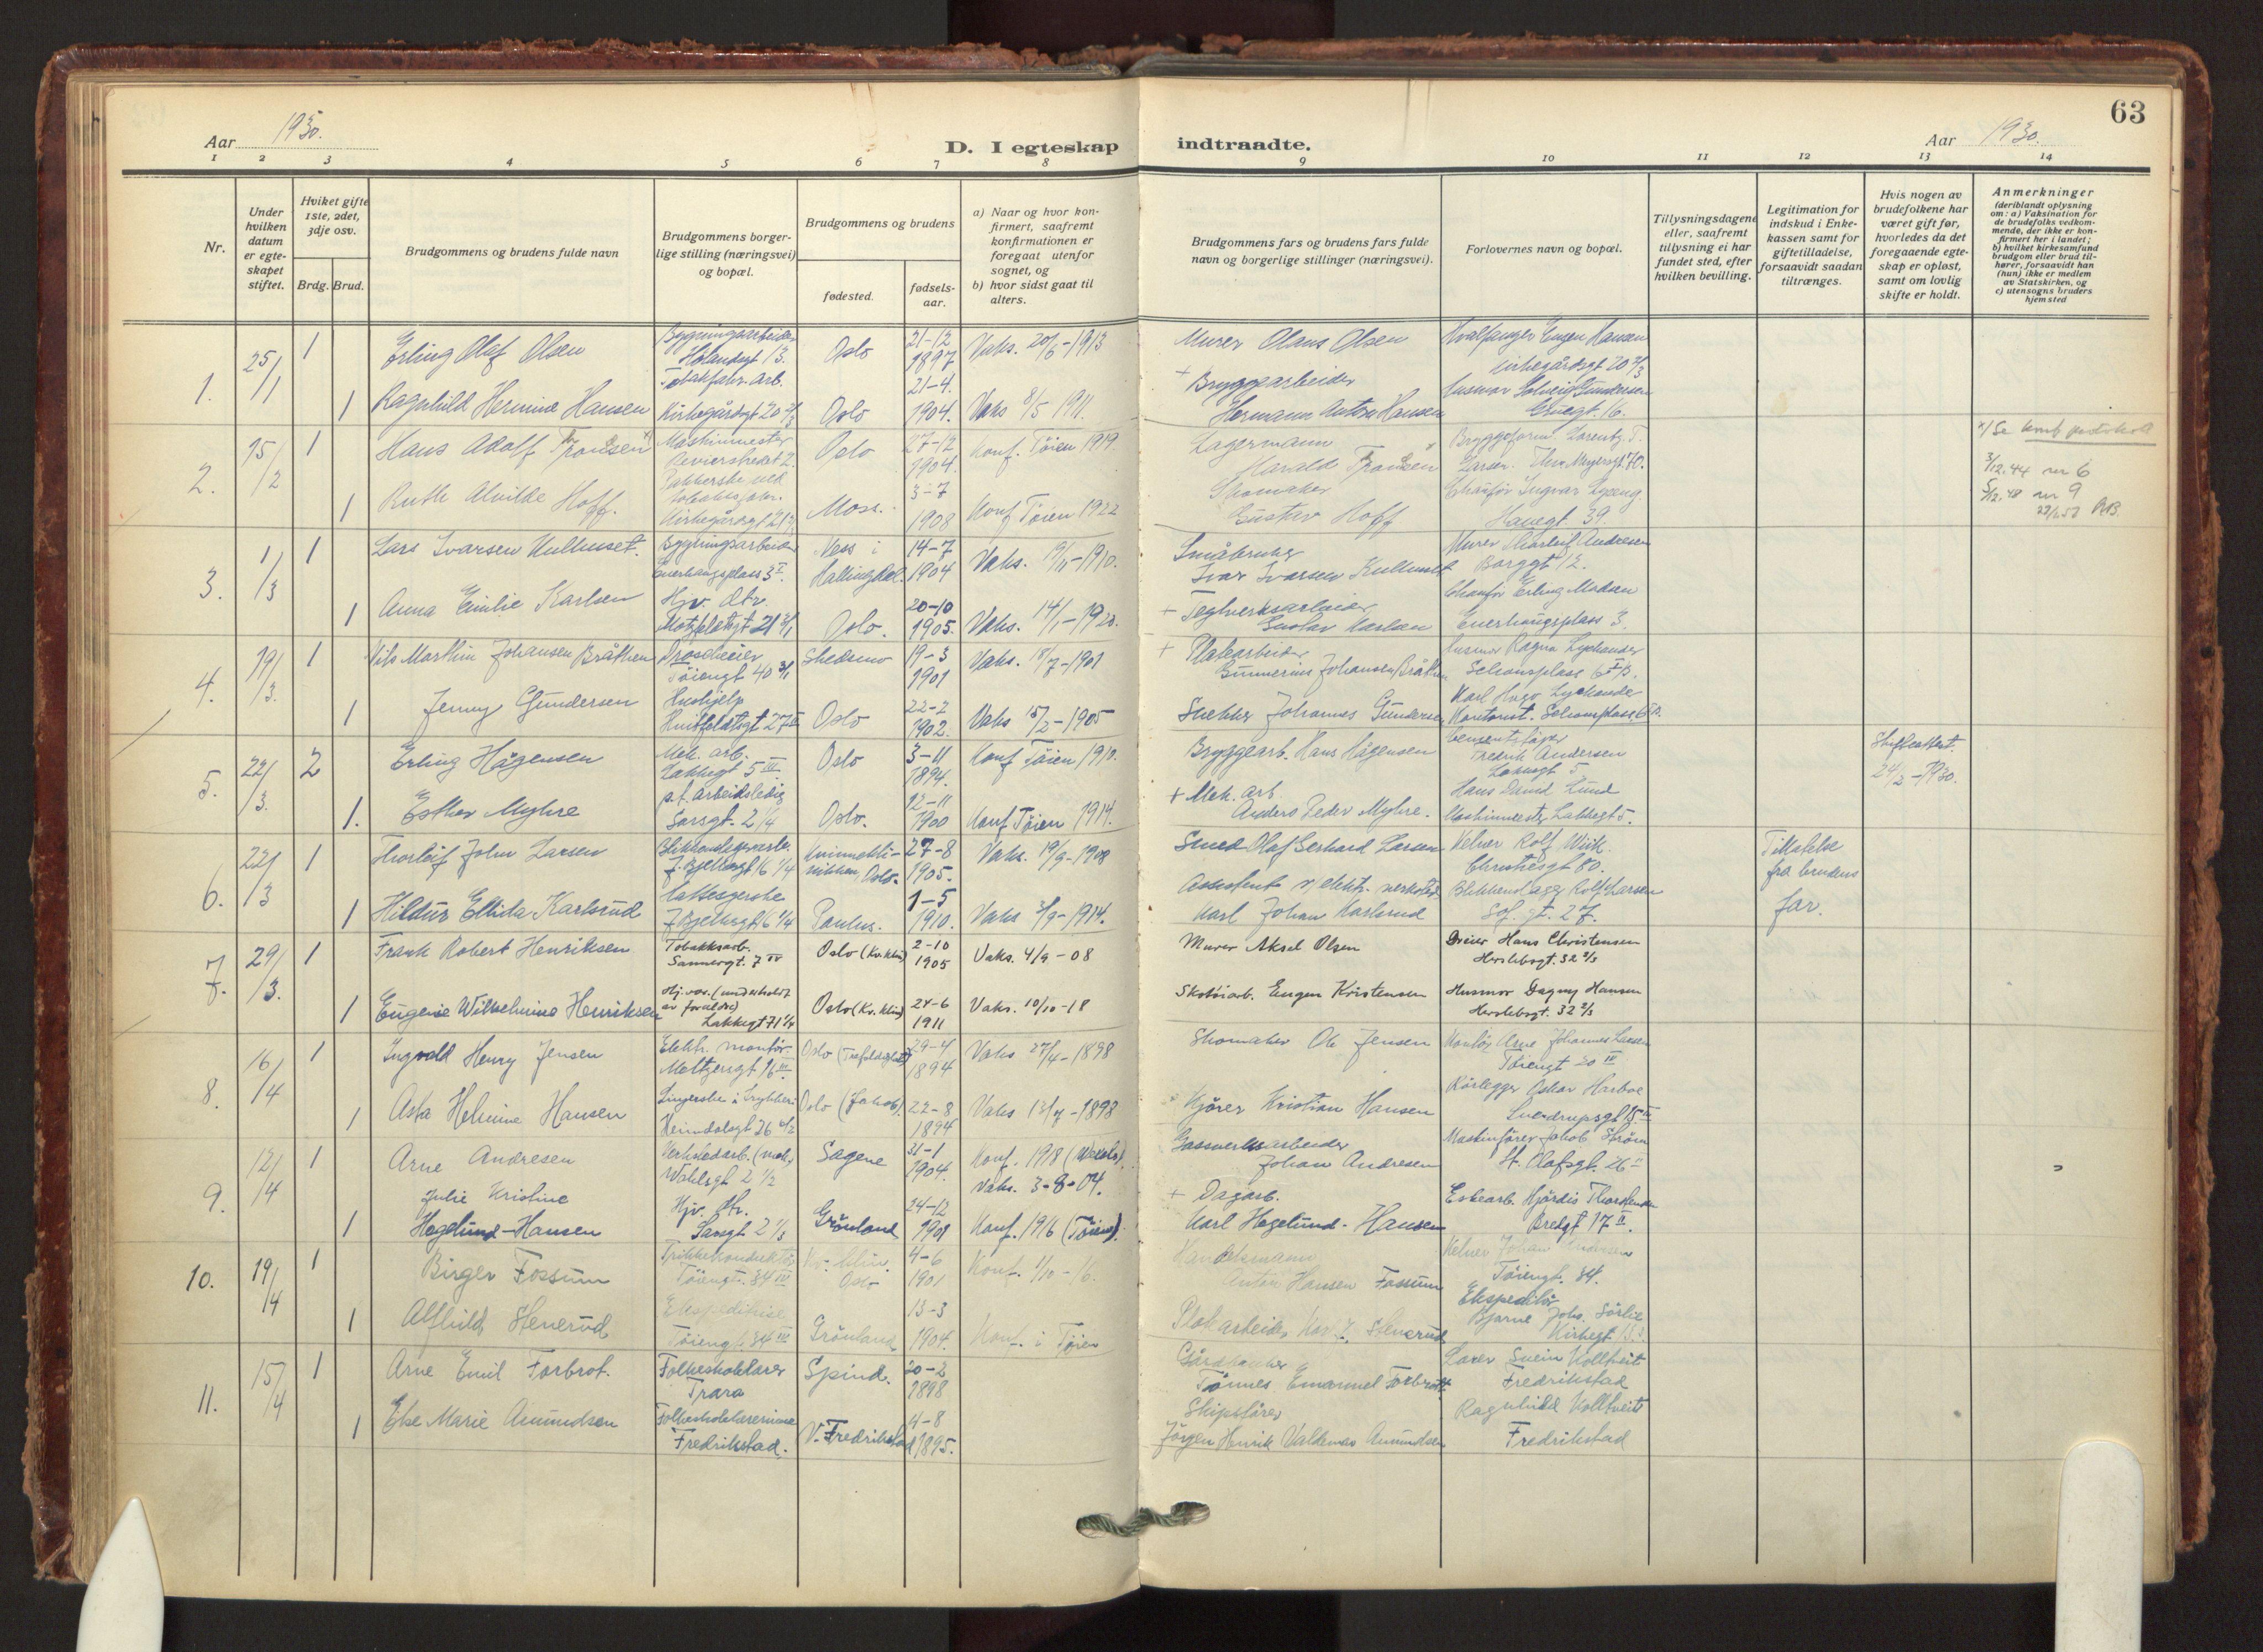 63
Aar 1930.
D. I egteskap indtraadte.
Aar 1930.
1 2 3 4 5 6 7 8 9 10 11 12 13 14
Nr.
Under hvilken datum er egte-skapet stiftet.
Hviket gifte 1ste, 2det, 3dje osv.
Brdg. Brud.
Brudgommens og brudens fulde navn
Brudgommens borger-lige stilling (næringsvei) og bopæl.
Brudgommens og brudens
fødested.
fødsels-aar.
a) Naar og hvor kon-firmert, saafremt konfirmationen er foregaat utenfor sognet, og
b) hvor sidst gaat til alters.
Brudgommens fars og brudens fars fulde navn og borgerlige stillinger (næringsvei).
Forlovernes navn og bopæl.
Tillysningsdagene eller, saafremt tillysning ei har fundet sted, efter hvilken bevilling.
Legitimation for indskud i Enke-kassen samt for giftetilladelse, forsaavidt saadan tiltrænges.
Hvis nogen av brudefolkene har været gift før, hvorledes da det foregaaende egte-skap er opløst, samt om lovlig skifte er holdt.
Anmerkninger (deriblandt oplysning om: a) Vaksination for de brudefolks vedkom-mende, der ikke er kon-firmert her i landet; b) hvilket kirkesamfund brudgom eller brud til-hører, forsaavidt han (hun) ikke er medlem av Statskirken, og c) utensogns bruders hjemsted
1. 25/1 1 Erling Olaf Olsen
Bygningsarbeider
Oslo 21-12 1897 Vaks. 20/6-1913
Murer Olaus Olsen
Hvalfanger Eugen Hansen
Kirkegårdsgt 20 2/3
1 Ragnhild Hermine Hansen
Kirkegårdsgt 20 2/3
Oslo 21-4. 1904. Vaks 8/5 1911.
+ Bryggearbeider
Hermann Anton Hansen
Husmor Solveig Gundersen
2. 15/2 1 Hans Adolf Tronsen
Maskinmester
Oslo 27-12 1904. Konf. Töien 1919.
Lagermann
Harald Tronsen
Bryggeform. Lorentz T.
Larsen. Thv. Meyersgt 70.
3/12.44 nr 6
5/12.48 nr 9
1 Ruth Alvilde Hoff.
Moss. 3-7 1908 Konf Töien 1922
Skomaker
Gustav Hoff
Chauför Ingvar Lyseng
Havegt. 39.
3. 1/3 1 Lars Ivarsen Kulhuset.
Bygningsarbeider
Enerhaugsplass 3 II.
Ness i Hallingdal. 14-7 1904 Vaks. 19/11-1910.
Småbruker
Ivar Ivarsen Kulhuset
Murer Thorleif Andresen
Borggt 12.
1 Anna Emilie Karlsen
Hjv. dtr.
Motzfeldtsgt 21 3/1
Oslo. 20-10 1905. Vaks. 14/1-1920.
+ Teglverksarbeider
Gustav Karlsen
Chauför Erling Madsen
Enerhaugsplass 3.
4. 19/3. 1 Nils Marthin Johansen Bråthen
Droscheeier
Töiengt 40 3/1
Skedsmo 19-3 1901 Vaks. 18/7-1901
+ Platearbeider
Gunnerius Johansen Bråthen
Husmor Ragna Lychander
Schousplass 6
1 Jenny Gundersen
Hushjelp
Huitfeldtsgt 27
Oslo 22-2 1902. Vaks 15/2-1905
Snekker Johannes Gundersen
Karl Hugo Lychander
Kontorist. Schousplass 6
5. 22/3. 2 Erling Hågensen
Mek. arb.
Lakkegt 5 III.
Oslo 3-11 1894. Konf Töien 1910.
Bryggearb. Hans Hågensen
Fredrik Andersen
Lakkegt 5
Skifteattest
24/2-1930.
1. Esther Myhre
p.t. arbeidsledig
Sarsgt. 2 1/4
Oslo. 12-11 1900 Konf Töien 1914.
+ Mek. arb.
Anders Peder Myhre.
Hans David Lund
Maskinmester Lakkegt 5.
6. 22/3 1 Thorleif John Larsen
Kvinnekli-nikken, Oslo. 27-8 1905. Vaks. 19/9-1908
Smed Olaf Gerhard Larsen
Kelner Rolf Wiik.
Christiesgt 80.
Tillatelse fra brudens far.
1 Hildur Ellida Karlsrud
Paulus. 1-5 1910. Vaks 3/9-1914.
Assistent v/ elektr. verksted
Karl Johan Karlsrud
Blikkenslager Rolf Larsen
Sof. gt. 27.
7. 29/3. 1 Frank Robert Henriksen
Tobakksarb.
Sannergt. 7 IV
Oslo (Kv. klin) 2-10 1905 Vaks. 4/9-08
Murer Aksel Olsen
Dreier Hans Christensen
Herslebsgt. 32 2/3
1 Eugenie Wilhelmine Henriksen
Hj.vær. (underholdt av foreldre)
Lakkegt 71 1/4
Oslo (Kv. klin) 28-6 1911 Vaks. 10/10-18
Skotöiarb. Eugen Kristensen
Husmor Dagny Hansen
Herslebsgt. 32 2/3
8. 16/4 1 Ingvald Henry Jensen
Elektr. montör.
Meltzersgt 16 III.
Oslo 29-4 1894 Vaks 27/4-1898
Skomaker Ole Jensen
Kontor Arne Johannes Larsen
Töiengt 20 IV
1 Asta Helmine Hansen
Heimdalsgt 26 4/2
Oslo (Jakob). 22-8 1894 Vaks 13/7-1898
Kjörer Kristian Hansen
Rörlegger Oskar Harboe
Sverdrupsgt 15 III
9. 12/4 1 Arne Andresen
Verkstedarb. (mek)
Wahlsgt 2 1/2
Sagene 31-1 1904. Konf. 1918
Vaks. 3-8-04.
Gassverksarbeider
Johan Andresen
Maskinförer Jakob Ström
St. Olafsgt. 26 II
1 Julie Kristine Hegelund-Hansen
Hjv. dtr.
Sarsgt 2 1/3
Grönland 24-12 1901 Konf. 1916 (Töien).
+ Dagarb.
Karl Hegelund-Hansen
Eskearb. Hjördis Thorstensen
Bredgt 17 II.
10. 19/4 1 Birger Fossum
Trikkekonduktör
Töiengt. 34 IV
Kv. klin. Oslo 4-6 1901 Konf. 1/10-16.
Handelsmann
Anton Hansen Fossum
Kelner Johan
Töiengt. 34.
1 Alfhild Stenerud
Ekspeditrise
Töiengt. 34 III
Grönland 13-3 1904. Konf. i Töien
Platearbeider Karl J. Stenerud
Ekspeditör
Bjarne Johs. Sörlie
Kirkegt. 15.
11. 15/4 1 Arne Emil Forbrot.
Folkeskolelærer
Trara
Spind. 20-2 1898
Gårdbruker
Tönnes Emanuel Forbrott
Lærer Svein Kolltveit
Fredrikstad
1 Else Marie Amundsen
Folkeskolelærerinne
Fredrikstad.
V. Fredrikstad 4-8 1895.
Skipsförer
Jörgen Henrik Valdemar Amundsen
Ragnhild Kolltveit
Fredrikstad